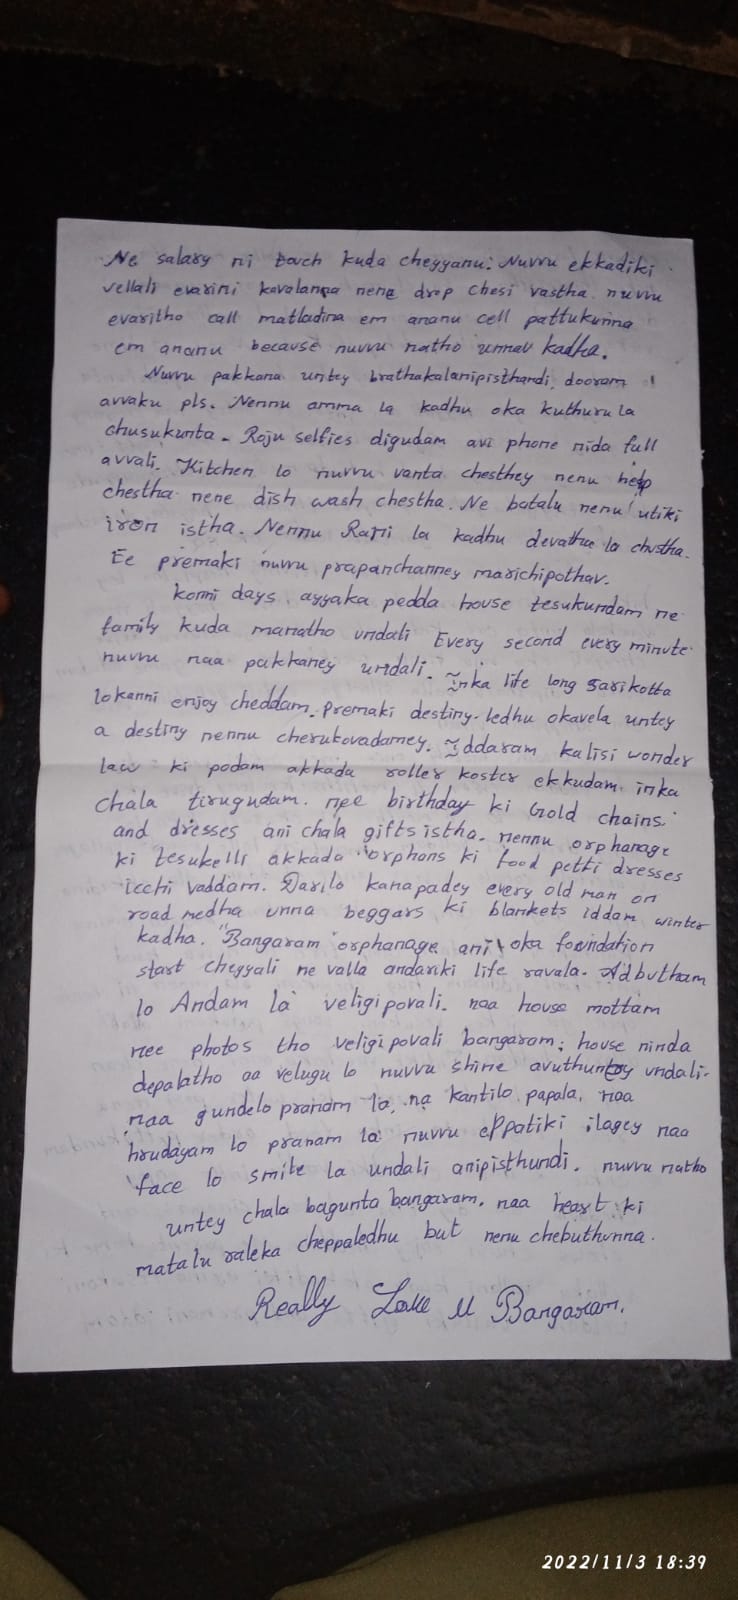 Ne salary ni touch kuda cheyyanu. Nuvvu ekkadiki
vellali evarini kavalanna nene drop chesi vastha nuvvu
evaritho call matladina em ananu cell pattukunna
em ananu because nuvvu natho unnav kadha.
Nuvvu pakkana untey brathakalanipisthandi, dooram
avvaku pls. Nennu amma la kadhu oka kuthuru la
chusukunta. Roju selfies digudam avi phone nida full
avvali. Kitchen lo nuvvu vanta chesthey nenu help
chestha nene dish wash chestha. Ne batalu nenu utiki
iron istha. Nennu Rani la kadhu devatha la chustha.
Ee premaki nuvvu prapanchanney marichipothav.
konni days ayyaka pedda house tesukundam ne
family kuda manatho undali Every second every minute
nuvvu naa pakkaney undali. Inka life long sarikotta
lokanni enjoy cheddam. premaki destiny ledhu okavela untey
a destiny nennu cherukovadamey. Iddaram kalisi wonder
law ki podam akkada roller koster ekkudam inka
chala tirugudam. nee birthday ki Gold chains
and dresses ani chala gifts istha. nennu orphanage
ki tesukelli akkada orphans ki food petti dresses
icchi vaddam. Darilo kanapadey every old man on
road medha unna beggars ki blankets iddam winter
kadha. "Bangaram" orphanage ani oka foundation
start cheyyali ne valla andariki life ravala. Adbutham
lo Andam la veligipovali. naa house mottam
nee photos tho veligipovali bangaram; house ninda
depalatho aa velugu lo nuvvu shine avuthuntey undali.
naa gundelo pranam la, na kantilo papala, naa
hrudayam lo pranam la nuvvu eppatiki ilagey naa
face lo smile la undali anipisthundi. nuvvu natho
untey chala bagunta bangaram. naa heart ki
matalu raleka cheppaledhu but nenu chebuthunna.
Really Love U Bangaram.
2022/11/3 18:39